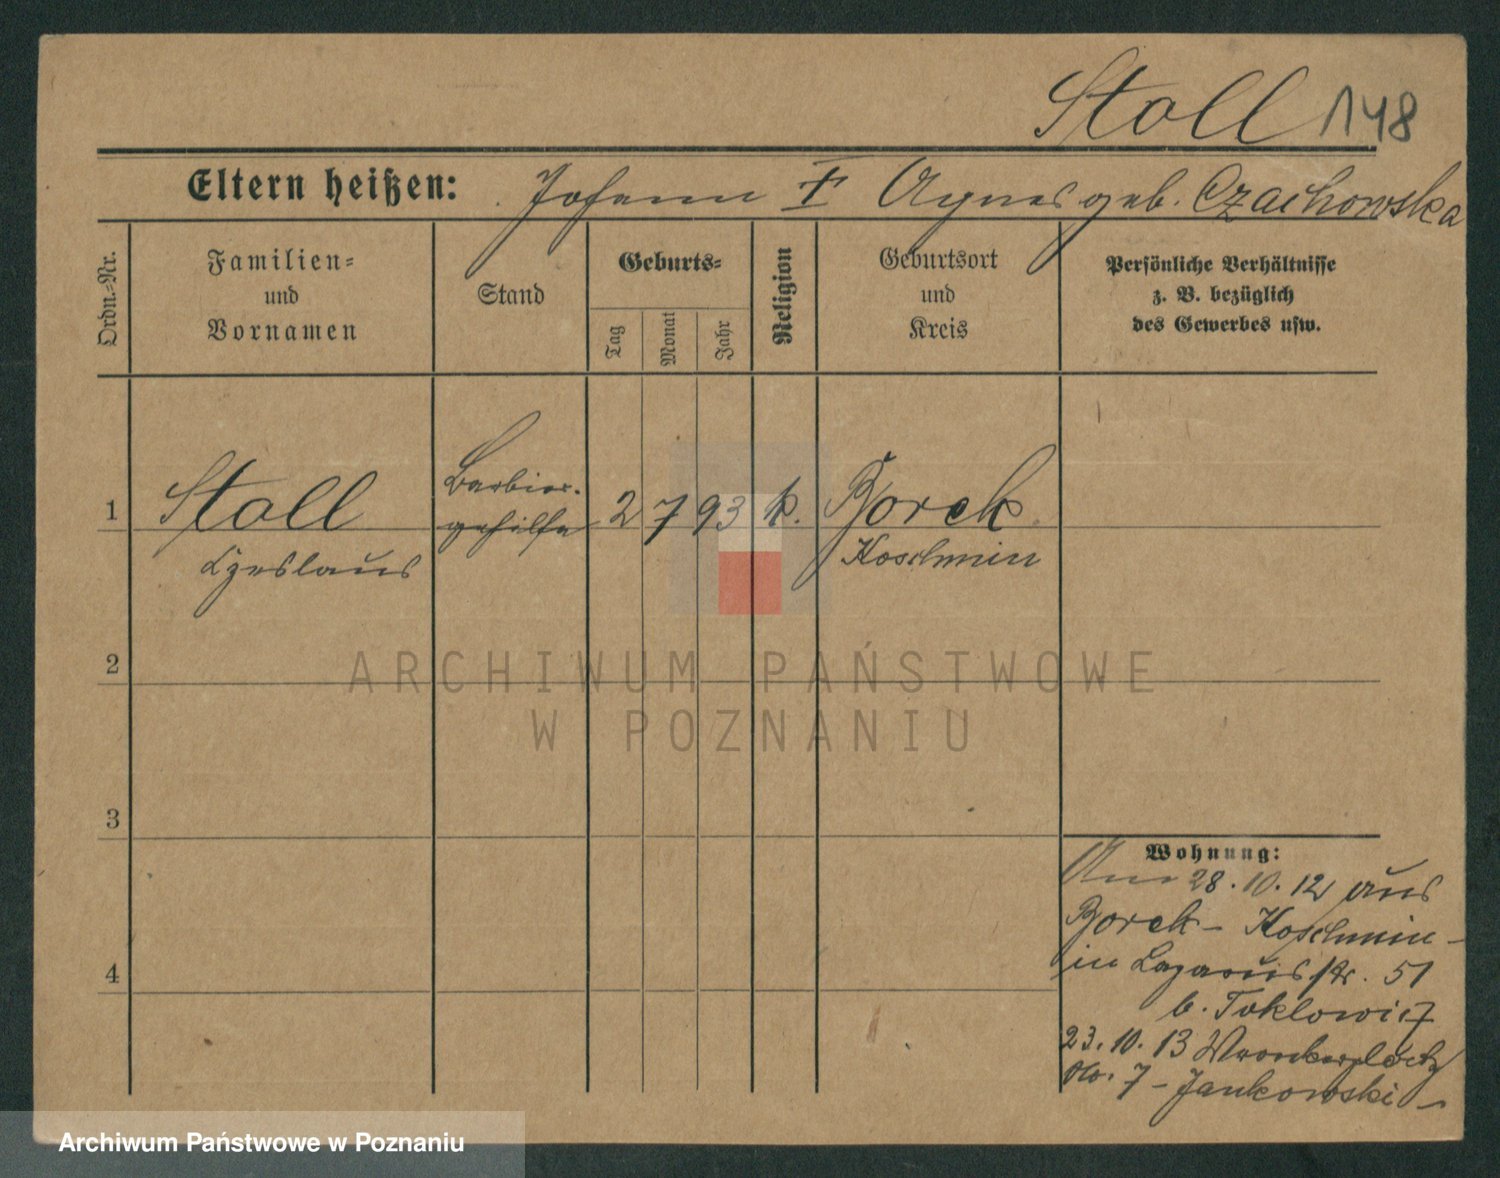 Stoll 148
Eltern heißen: Johann † Agnes geb. Czachowska
Ordn.-Nr.
Familien-
und
Vornamen
Stand
Geburts-
Tag
Monat
Jahr
Religion
Geburtsort
und
Kreis
Persönliche Verhältnisse
z. B. bezüglich
des Gewerbes usw.
1 Stoll Barbier- 2 7 93 k. Borek
gehilfe
Czeslaus Koschmin
2
ARCHIWUM PAŃSTWOWE
W POZNANIU
3
Wohnung:
Am 28.10.12 aus
Borek - Koschmin -
in Lazarusstr. 51
b.
23.10.13 Wronkerplatz
No. 7 - Jankowski -
4
Archiwum Państwowe w Poznaniu